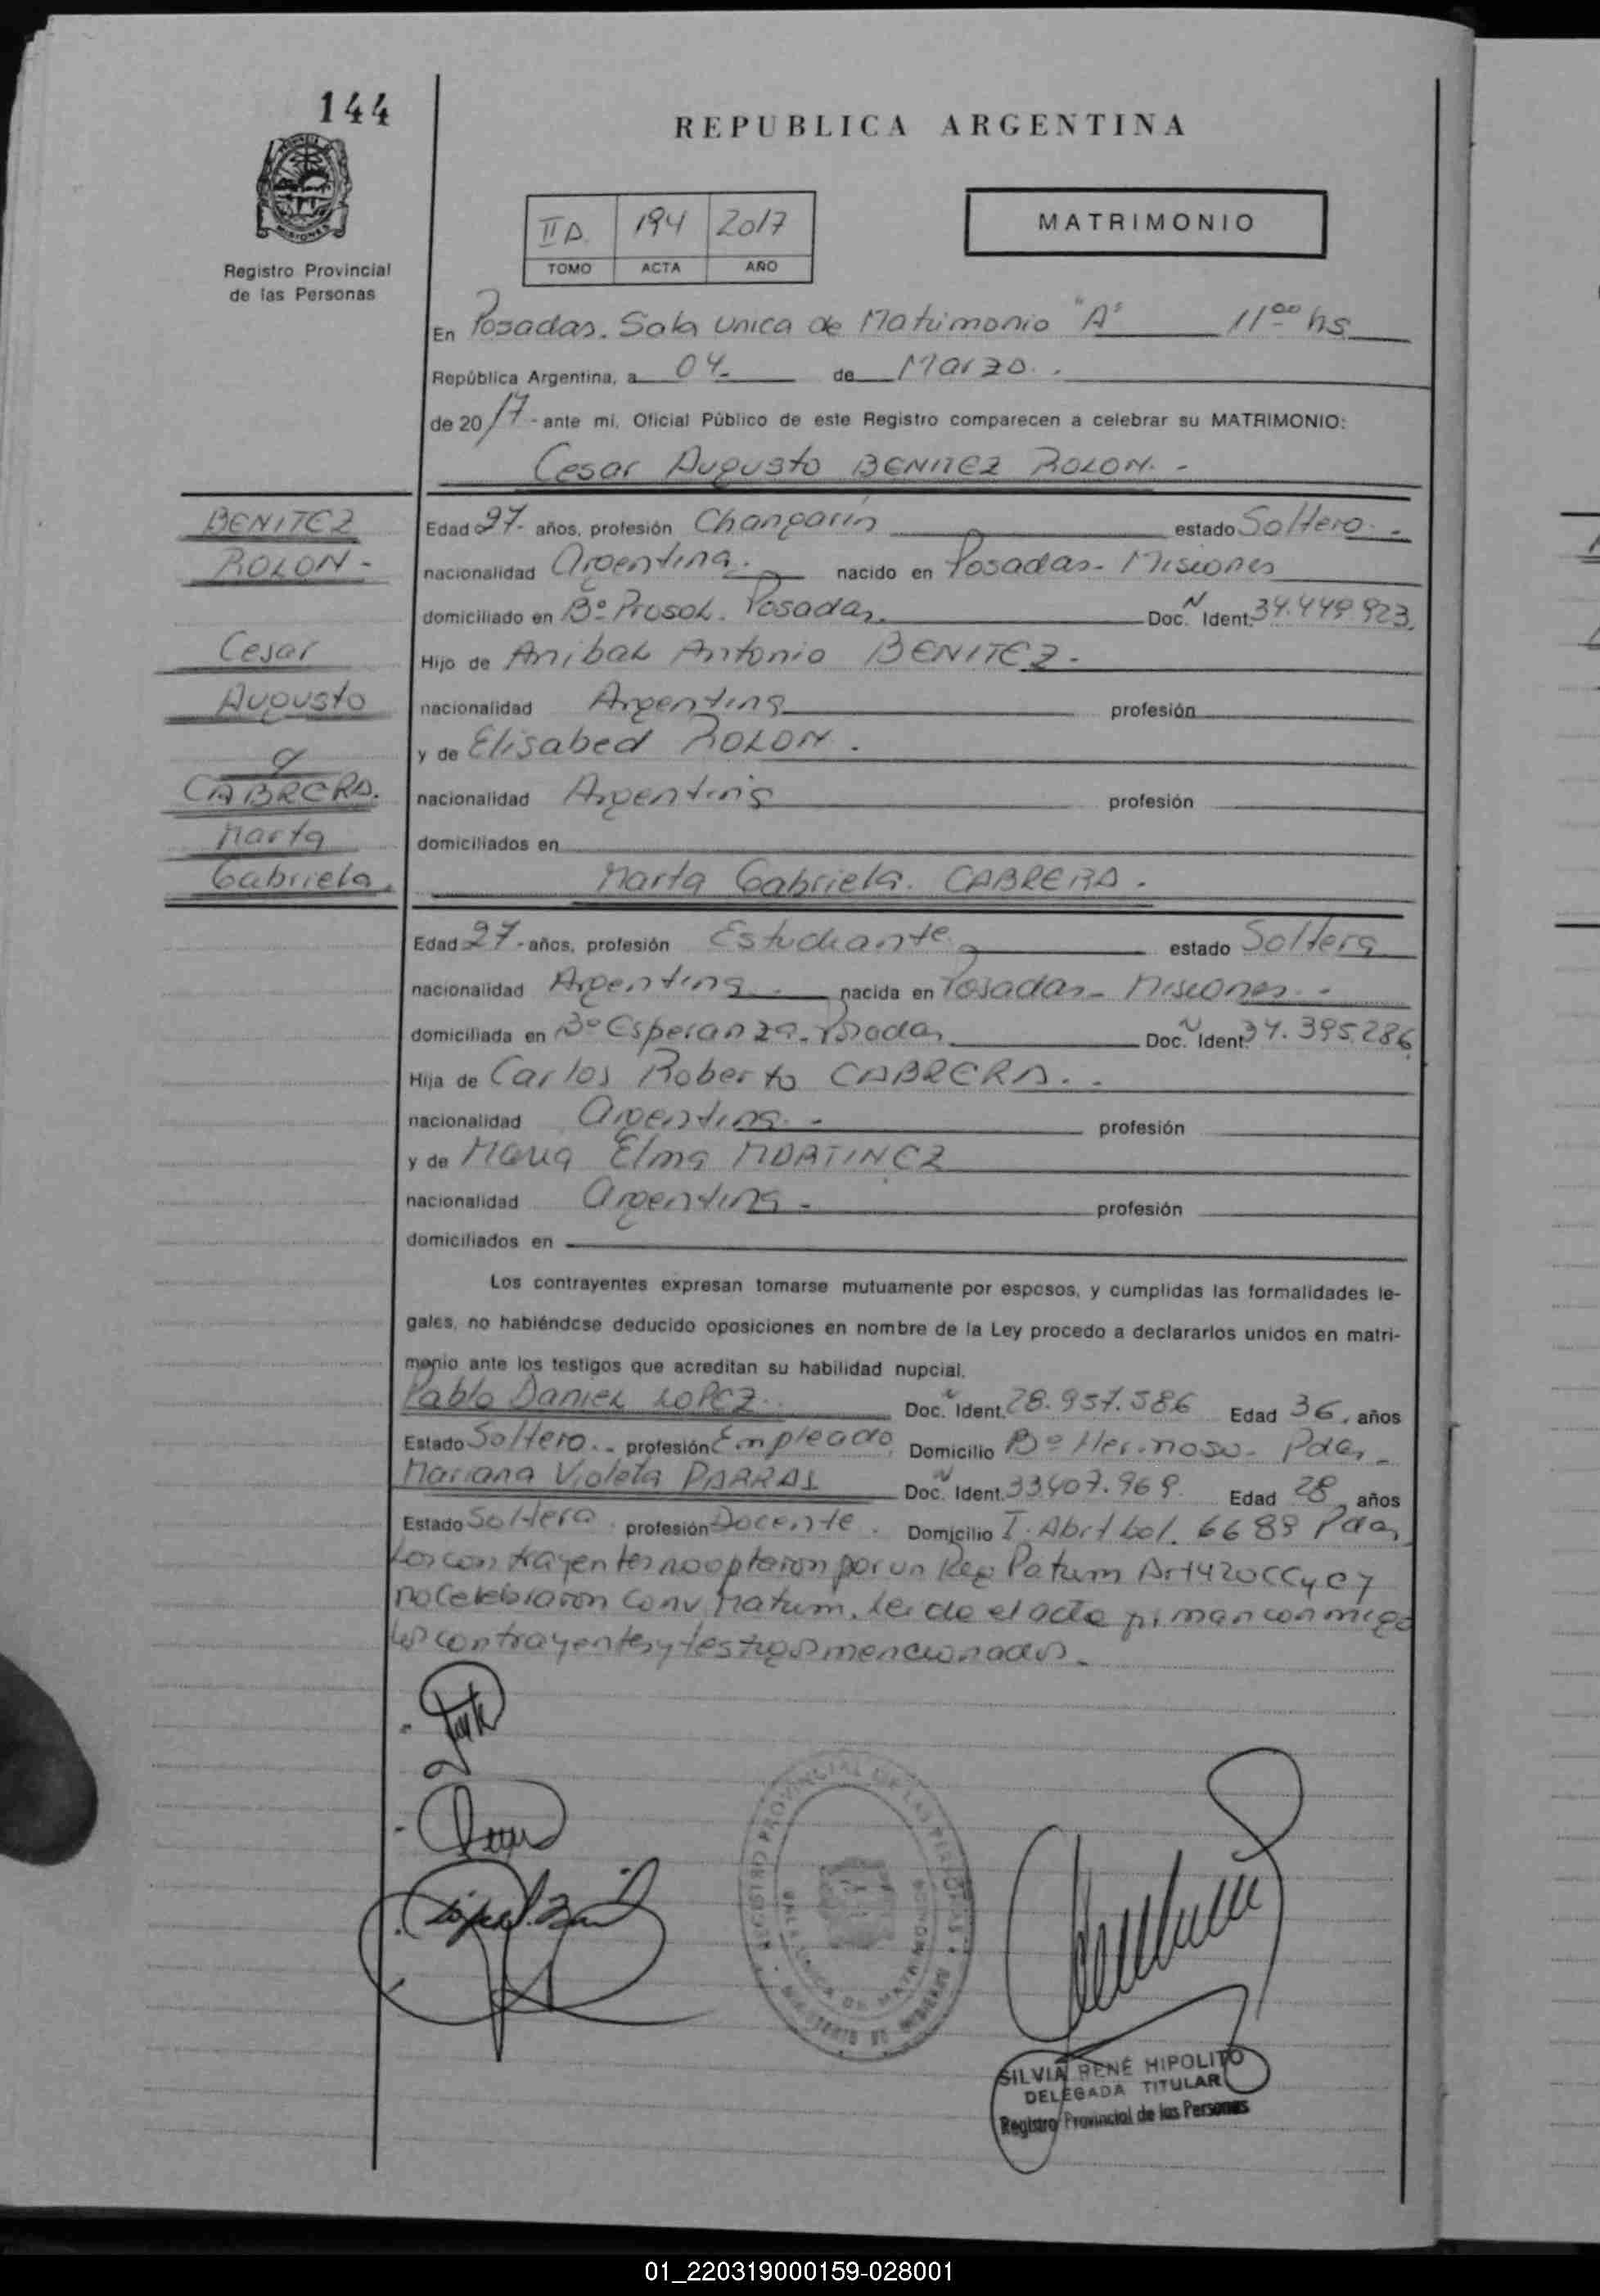 144
REPUBLICA ARGENTINA
MISIONES
Registro Provincial
de las Personas
II A. 194 2017
TOMO ACTA AÑO
MATRIMONIO
En Posadas. Sala Unica de Matrimonio "A" 11 00 hs
República Argentina, a 04 de Marzo.
de 2017 - ante mi, Oficial Público de este Registro comparecen a celebrar su MATRIMONIO:
Cesar Augusto BENITEZ ROLON. -
BENITEZ
ROLON -
Cesar
Augusto
CABRERA.
Marta
Gabriela.
Edad 27- años, profesión Changarin estado Soltero. -
nacionalidad Argentina. nacido en Posadas- Misiones
domiciliado en Bº Prosol. Posadas. Doc. N Ident. 34.449.923.
Hijo de Anibal Antonio BENITEZ -
nacionalidad Argentina profesión
y de Elisabed ROLON.
nacionalidad Argentina profesión
domiciliados en
Marta Gabriela. CABRERA.
Edad 27- años, profesión Estudiante estado Soltera
nacionalidad Argentina nacida en Posadas- Misiones. -
domiciliada en Bº Esperanza. Posadas Doc. N Ident. 34.395.286
Hija de Carlos Roberto CABRERA. -
nacionalidad Argentina. - profesión
y de Maria Elma MARTINEZ
nacionalidad Argentina - profesión
domiciliados en
Los contrayentes expresan tomarse mutuamente por esposos, y cumplidas las formalidades le-
gales, no habiéndose deducido oposiciones en nombre de la Ley procedo a declararlos unidos en matri-
monio ante los testigos que acreditan su habilidad nupcial.
Pablo Daniel LOPEZ. Doc. N Ident. 28.957.586 Edad 36, años
Estado Soltero. - profesión Empleado Domicilio Bº Hermoso- Pdas -
Mariana Violeta PARRAS Doc. N Ident. 33.407.969 Edad 28, años
Estado Soltera profesión Docente. Domicilio 6689 Pdas
Los contrayentes no optaron por un Reg Patrim Art 420 CC y C y
no celebraron Conv Matrim. Leida el acta firman conmigo
los contrayentes y testigos mencionados. -
REGISTRO PROVINCIAL DE LAS PERSONAS
SALA UNICA DE MATRIMONIO
MINISTERIO DE GOBIERNO
SILVIA RENÉ HIPOLITO
DELEGADA TITULAR
Registro Provincial de las Personas
01_220319000159-028001